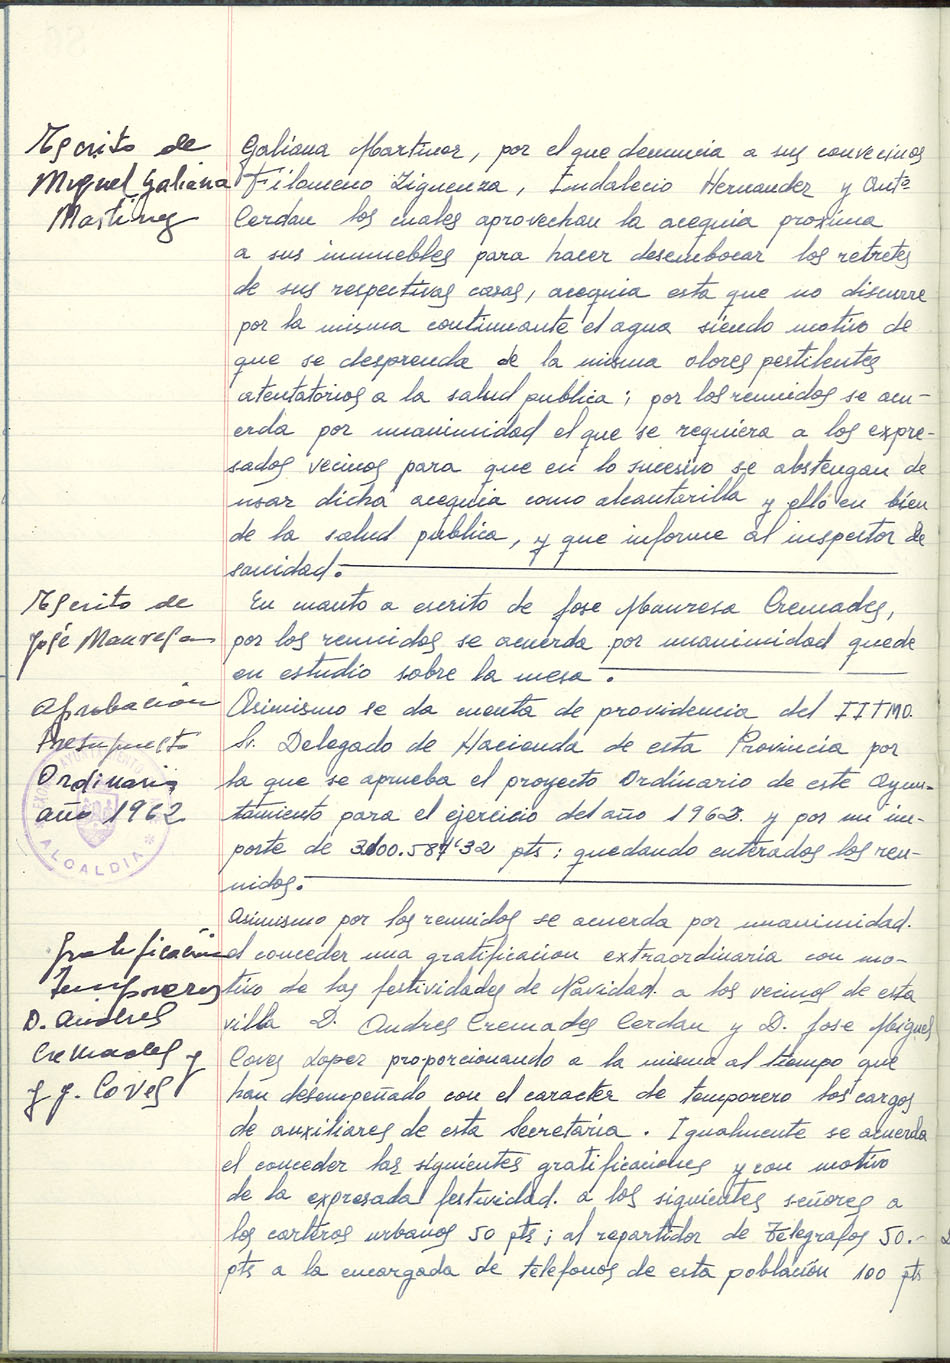 Escrito de
Miguel Galiana
Martinez
Galiana Martinez, por el que denuncia a sus convecinos
Filomeno Ziguenza, Indalecio Hernandez y Antº
Cerdan los cuales aprovechan la acequia proxima
a sus inmuebles para hacer desembocar los retretes
de sus respectivas casas, acequia esta que no discurre
por la misma continuante el agua siendo motivo de
que se desprenda de la misma olores pestilentes
atentatorios a la salud publica; por los reunidos se acu-
erda por unanimidad el que se requiera a los expre-
sados vecinos para que en lo sucesivo se abstengan de
usar dicha acequia como alcantarilla y ello en bien
de la salud publica, y que informe al inspector de
sanidad.
Escrito de
José Manresa
En cuanto a escrito de Jose Manresa Cremades,
por los reunidos se acuerda por unanimidad quede
en estudio sobre la mesa.
Aprobación
Presupuesto
Ordinario
año 1962
Asimismo se da cuenta de providencia del IITMO.
Sr. Delegado de Hacienda de esta Provincia por
la que se aprueba el proyecto Ordinario de este Ayun-
tamiento para el ejercicio del año 1962. y por un im-
porte de pts; quedando enterados los reu-
nidos.
AYUNTAMIENTO
ALCALDIA
Gratificación
Temporeros
D. Andres
Cremades y
y J. Coves
Asimismo por los reunidos se acuerda por unanimidad.
el conceder una gratificacion extraordinaria con mo-
tivo de las festividades de Navidad. a los vecinos de esta
villa D. Andres Cremades Cerdan y D. Jose Miguel
Coves Lopez proporcionando a la misma al tiempo que
han desempeñado con el caracter de temporero los cargos
de auxiliares de esta Secretaria. Igualmente se acuerda
el conceder las siguientes gratificaciones y con motivo
de la expresada festividad. a los siguientes señores a
los carteros urbanos 50 pts; al repartidor de Telegrafos 50.-
pts a la encargada de telefonos de esta población 100 pts